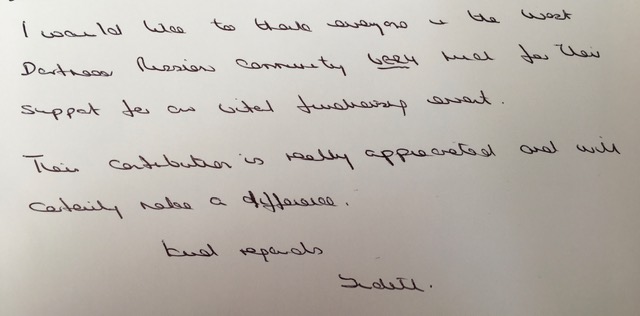 I would like to thank everyone in the West
Dartmoor Mission Community VERY much for their
support for our vital fundraising event.
Their contribution is really appreciated and will
certainly make a difference.
Kind regards
Judith.